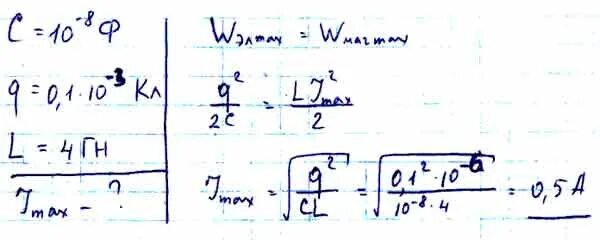 C = 10⁻⁸ Ф
q = 0,1·10⁻³ Кл
L = 4 Гн
Jmax – ?
Wэл max = Wмаг max
q²/2C = LJ²max/2
Jmax = √(q²/CL) = √(0,1²·10⁻⁶/10⁻⁸·4) = 0,5 А